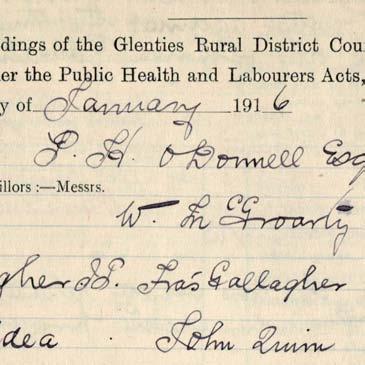 dings of the Glenties Rural District Cou
er the Public Health and Labourers Acts,
y of January 1916
P. H. O'Donnell Esq
illors :—Messrs.
W. McGroarty
gher JP. Fras Gallagher
dea John Quinn